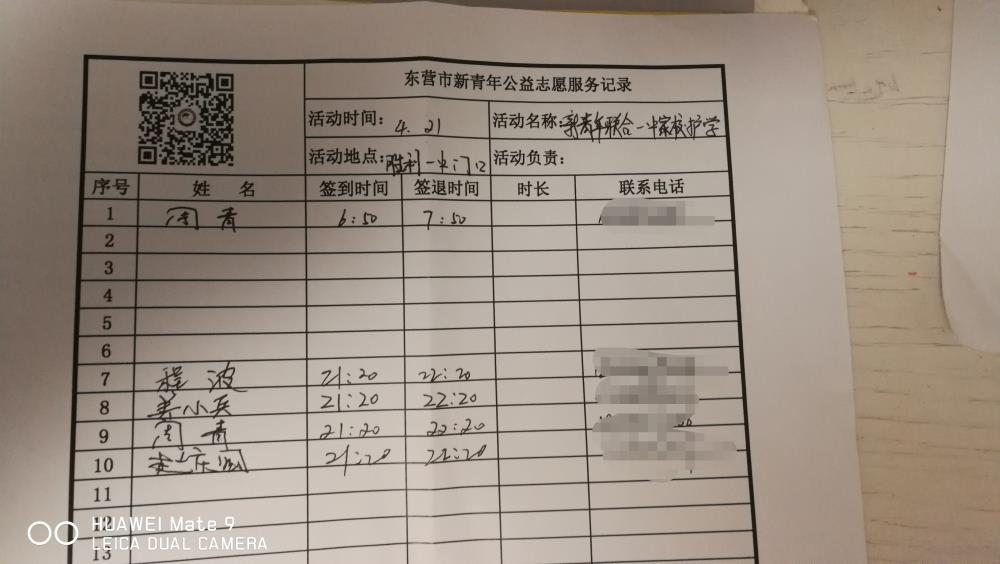 东营市新青年公益志愿服务记录
活动时间: 4.21 活动名称: 新青年联合一中家校护学
活动地点: 胜利一中门口 活动负责:
序号 姓名 签到时间 签退时间 时长 联系电话
1 周青 6:50 7:50
2
3
4
5
6
7 程波 21:20 22:20
8 姜小兵 21:20 22:20
9 周青 21:20 22:20
10 21:20 22:20
11
12
13
HUAWEI Mate 9
LEICA DUAL CAMERA